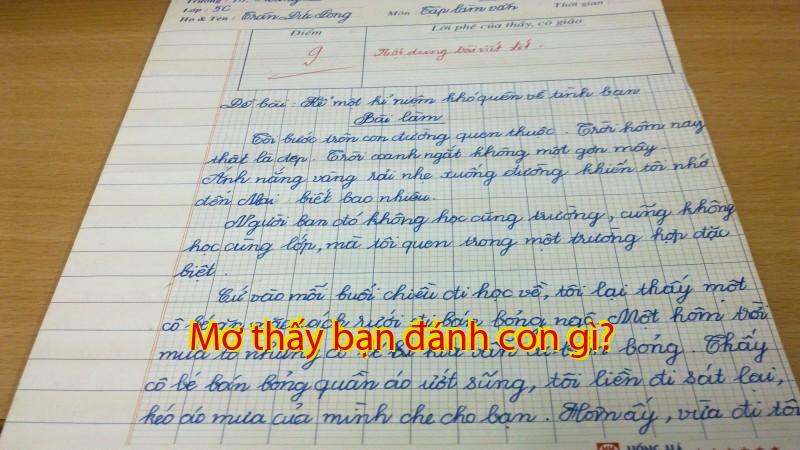 Lớp : 5C
Họ & Tên : Trần Đức Long
Môn : Tập làm văn
Thời gian
Điểm
Lời phê của thầy, cô giáo
9
Nội dung bài viết tốt.
Đề bài : Kể một kỉ niệm khó quên về tình bạn
Bài làm
Tôi bước trên con đường quen thuộc. Trời hôm nay
thật là đẹp. Trời xanh ngắt không một gợn mây.
Ánh nắng vàng rải nhẹ xuống đường khiến tôi nhớ
đến Mai biết bao nhiêu.
Người bạn đó không học cùng trường, cũng không
học cùng lớp, mà tôi quen trong một trường hợp đặc
biệt.
Cứ vào mỗi buổi chiều đi học về, tôi lại thấy một
cô bé rách rưới đi bán bỏng ngô. Một hôm trời
Mơ thấy bạn đánh con gì?
mưa to nhưng cô bé vẫn đi bỏng. Thấy
cô bé bán bỏng quần áo ướt sũng, tôi liền đi sát lại,
kéo áo mưa của mình che cho bạn. Hôm ấy, vừa đi tôi
HỒNG HÀ